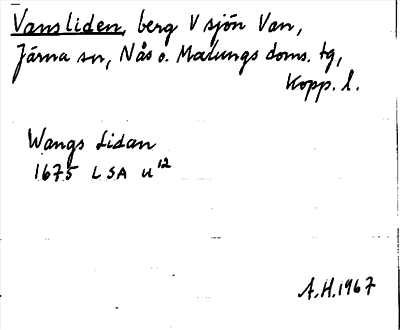 Vansliden, berg V sjön Van,
Järna sn, Nås o. Malungs doms. tg,
Kopp. l.
Wangs Lidan
1675 LSA U 12
A.H. 1967